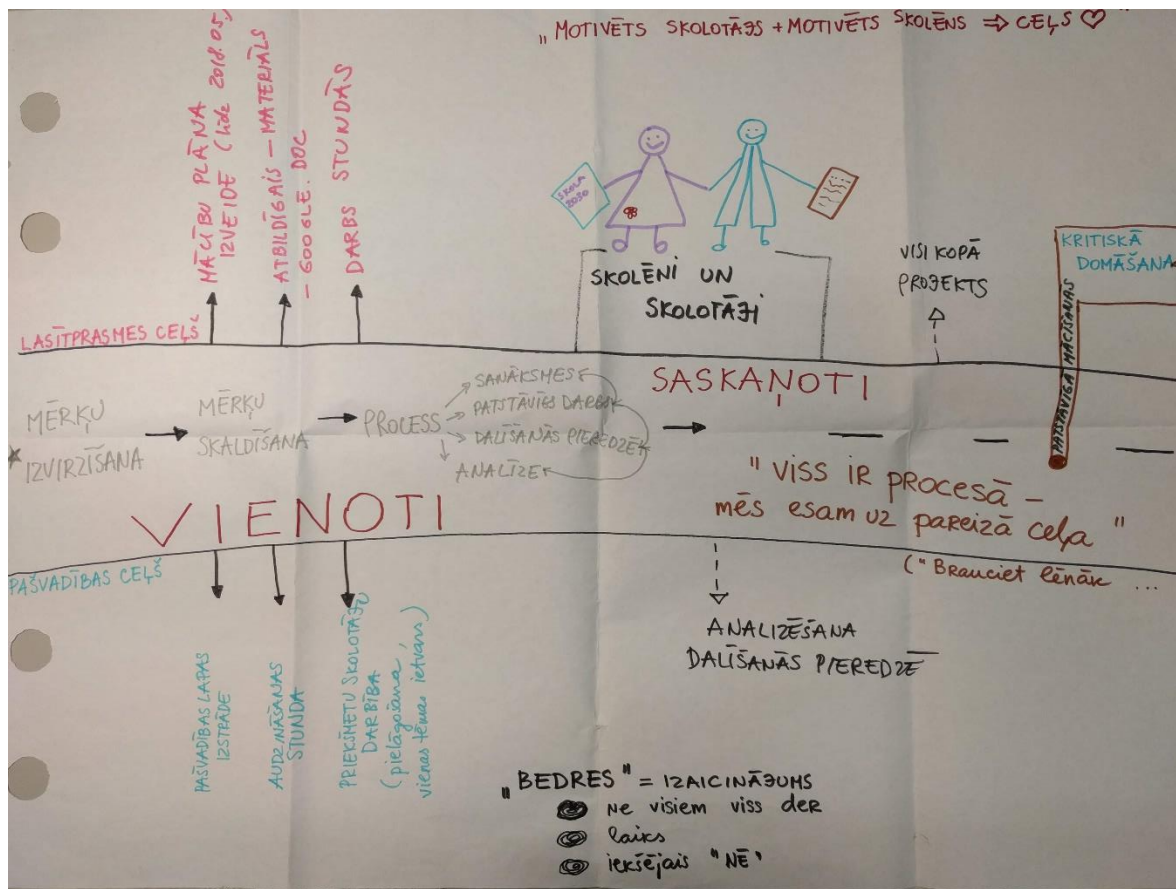 „MOTIVĒTS SKOLOTĀJS + MOTIVĒTS SKOLĒNS ⇒ CEĻŠ ♡"
MĀCĪBU PLĀNA
IZVEIDE (līdz 2018.05,
ATBILDĪGAIS – MATERIĀLS
– GOOGLE. DOC
DARBS STUNDĀS
SKOLA
2030
SKOLĒNI UN
SKOLOTĀJI
VISI KOPĀ
PROJEKTS
KRITISKĀ
DOMĀŠANA
PATSTĀVĪGA MĀCĪŠANAS
LASĪTPRASMES CEĻŠ
MĒRĶU
IZVIRZĪŠANA
MĒRĶU
SKALDĪŠANA
PROCESS
SANĀKSMES
PATSTĀVĪGS DARBS
DALĪŠANĀS PIEREDZĒ
ANALĪZE
SASKAŅOTI
VIENOTI
"VISS IR PROCESĀ –
MĒS ESAM UZ PAREIZĀ CEĻA"
("Brauciet lēnāk ...
PAŠVADĪBAS CEĻŠ
PAŠVADĪBAS LAPAS
IZSTRĀDE
AUDZINĀŠANAS
STUNDA
PRIEKŠMETU SKOLOTĀJU
DARBĪBA
(pielāgošana,
vienas tēmas ietvaros)
ANALIZĒŠANA
DALĪŠANĀS PIEREDZĒ
„BEDRES" = IZAICINĀJUMS
Ne visiem viss der
laiks
iekšējais "NĒ"